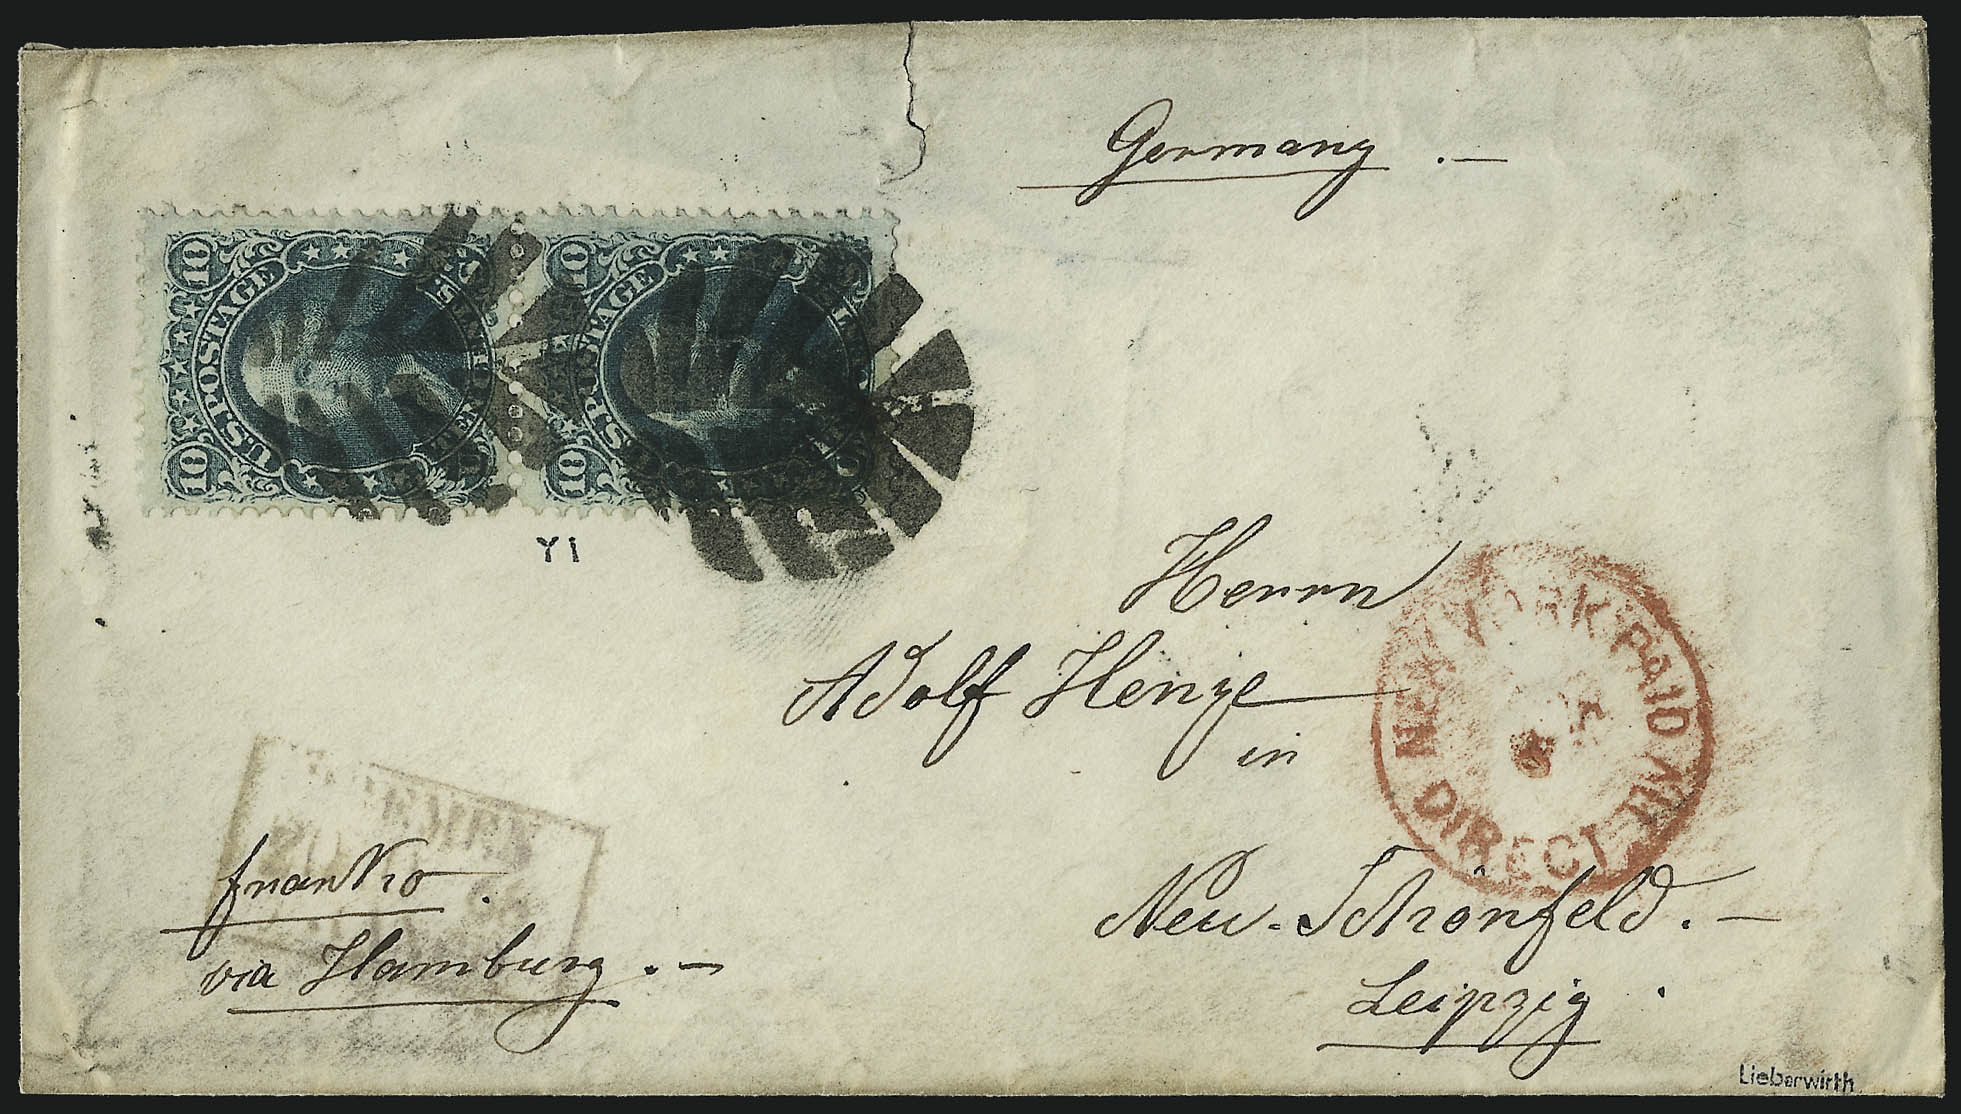 Germany . —
10 U.S. POSTAGE 10
10 U.S. POSTAGE 10
Y1
Herrn
Adolf Henze
in
NEW YORK PAID
DIRECT
Neu-Schönfeld. —
Leipzig .
franko .
via Hamburg . —
Lieberwirth